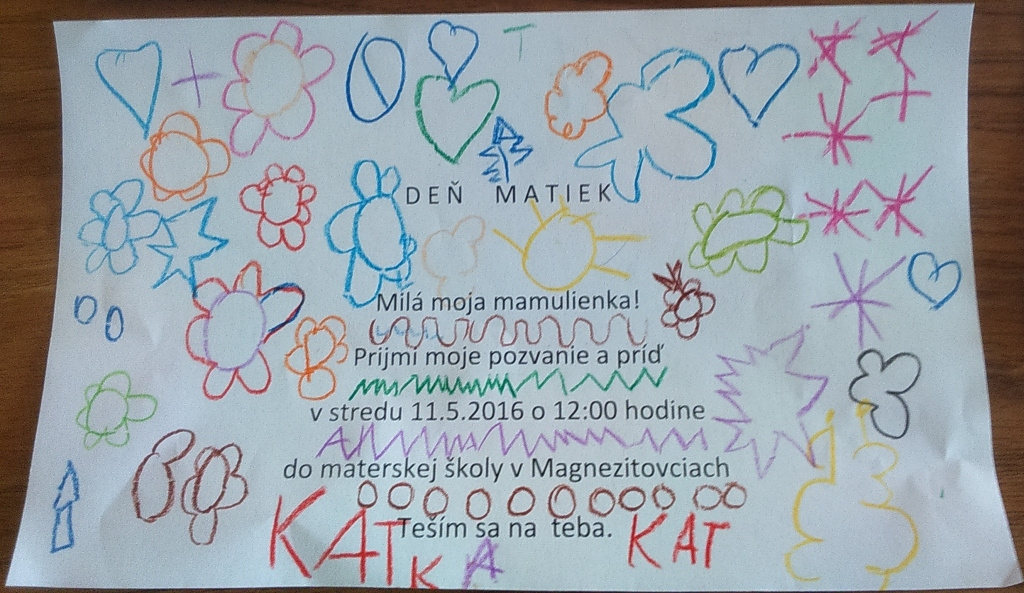 DEŇ MATIEK
Milá moja mamulienka!
Prijmi moje pozvanie a príď
v stredu 11.5.2016 o 12:00 hodine
do materskej školy v Magnezitovciach
Teším sa na teba.
KATKA KAT